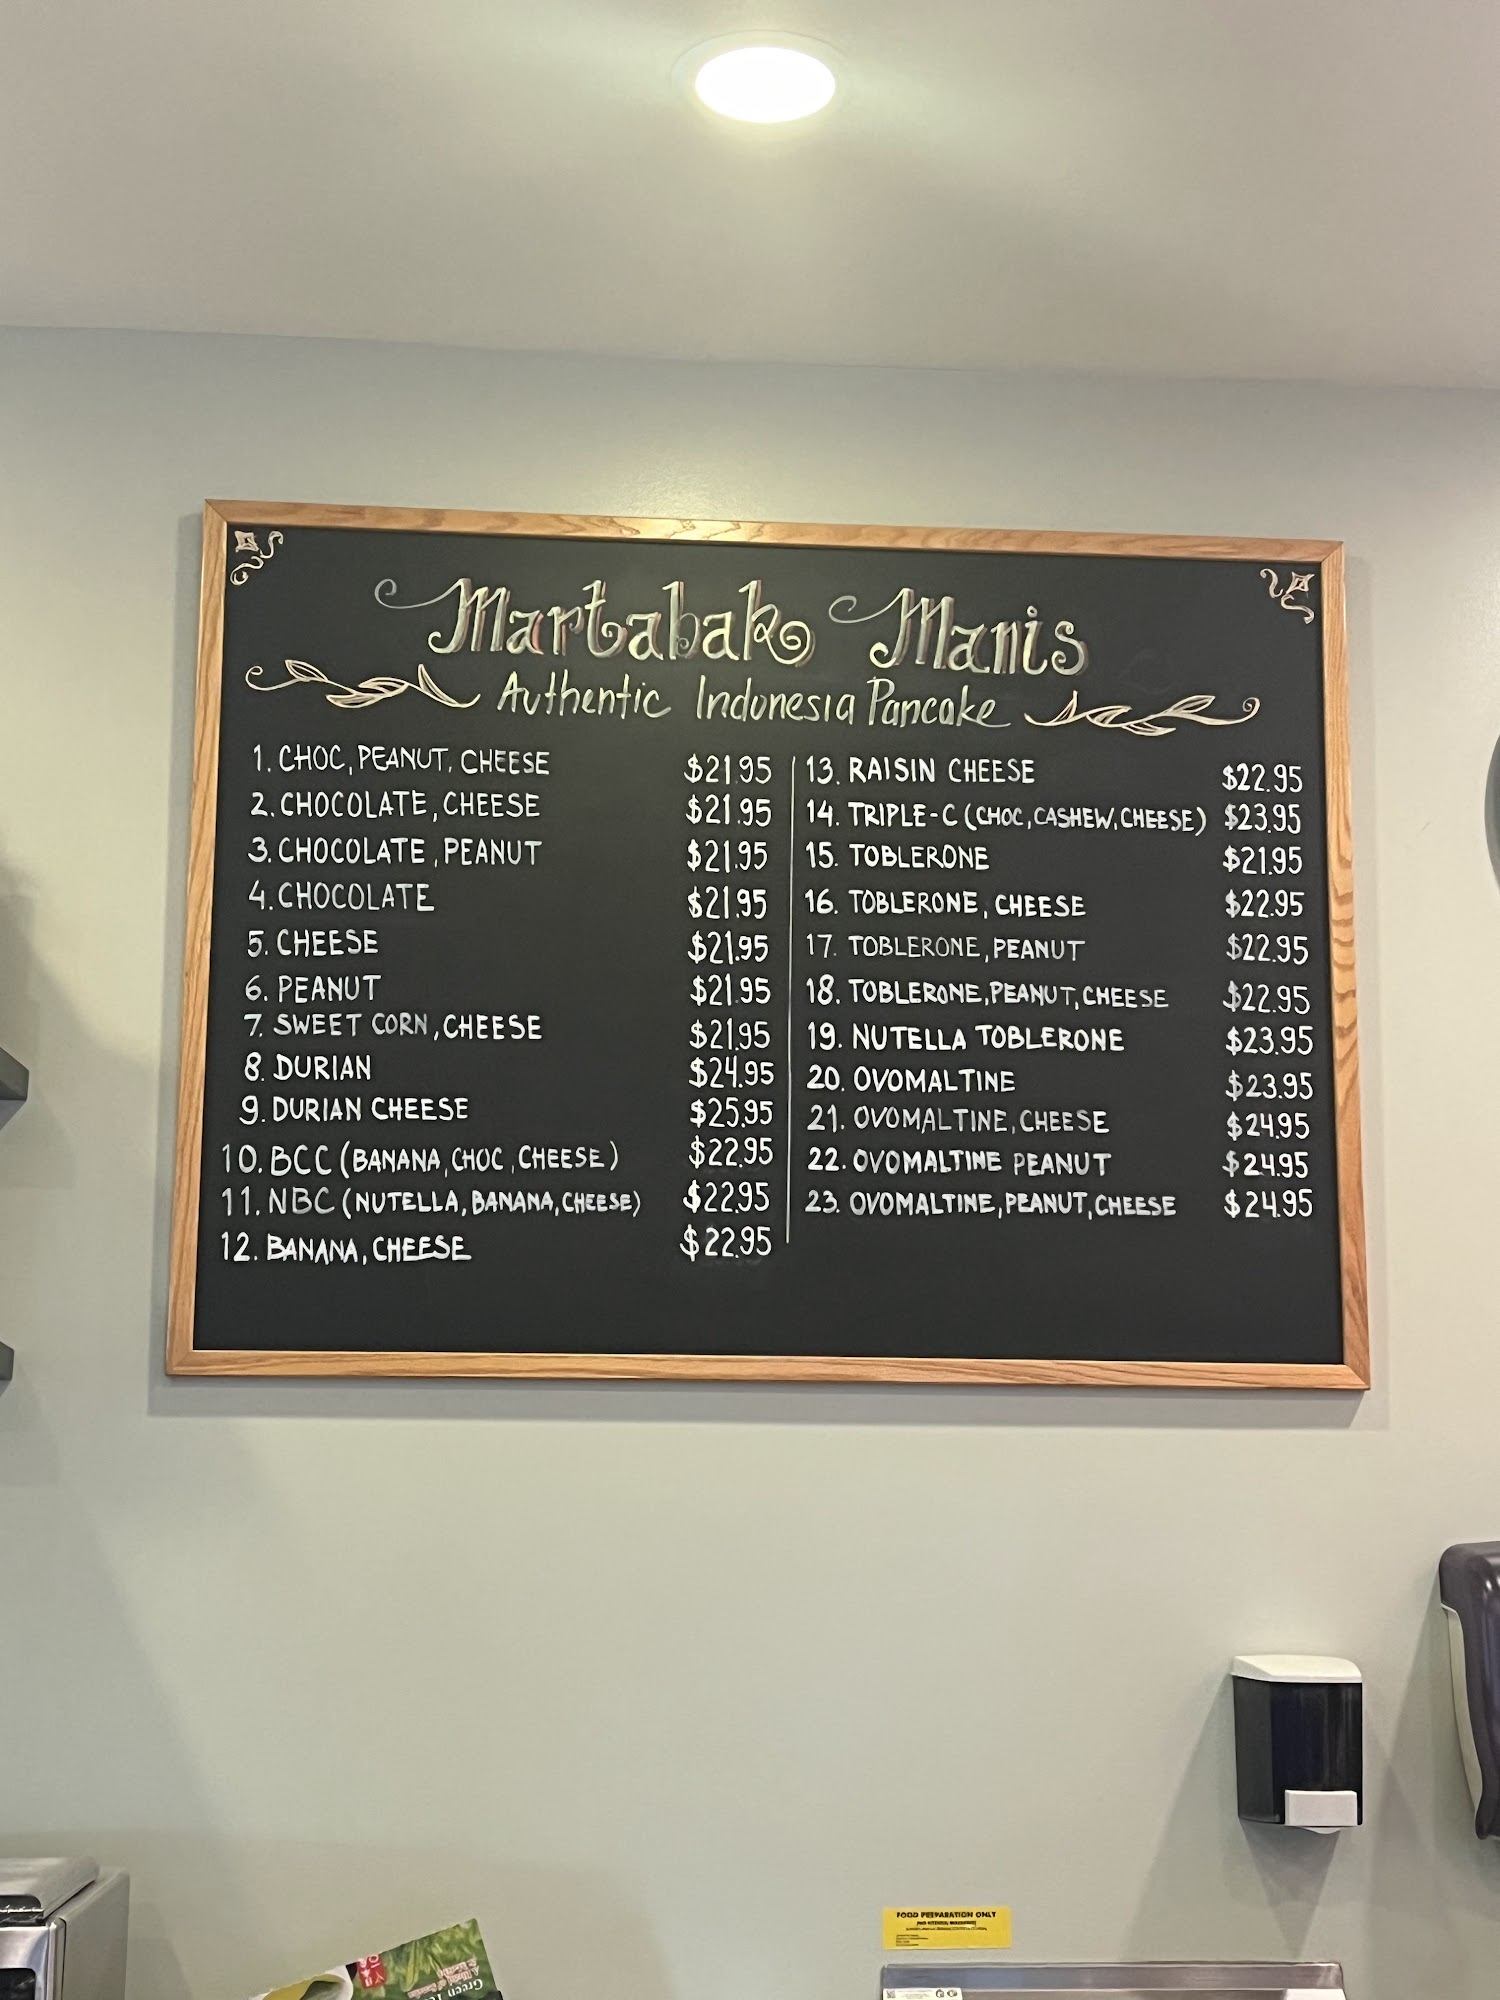 Martabak Manis
Authentic Indonesia Pancake
1. CHOC, PEANUT, CHEESE $21.95
2. CHOCOLATE, CHEESE $21.95
3. CHOCOLATE, PEANUT $21.95
4. CHOCOLATE $21.95
5. CHEESE $21.95
6. PEANUT $21.95
7. SWEET CORN, CHEESE $21.95
8. DURIAN $24.95
9. DURIAN CHEESE $25.95
10. BCC (BANANA, CHOC, CHEESE) $22.95
11. NBC (NUTELLA, BANANA, CHEESE) $22.95
12. BANANA, CHEESE $22.95
13. RAISIN CHEESE $22.95
14. TRIPLE-C (CHOC, CASHEW, CHEESE) $23.95
15. TOBLERONE $21.95
16. TOBLERONE, CHEESE $22.95
17. TOBLERONE, PEANUT $22.95
18. TOBLERONE, PEANUT, CHEESE $22.95
19. NUTELLA TOBLERONE $23.95
20. OVOMALTINE $23.95
21. OVOMALTINE, CHEESE $24.95
22. OVOMALTINE PEANUT $24.95
23. OVOMALTINE, PEANUT, CHEESE $24.95
FOOD PREPARATION ONLY
Green